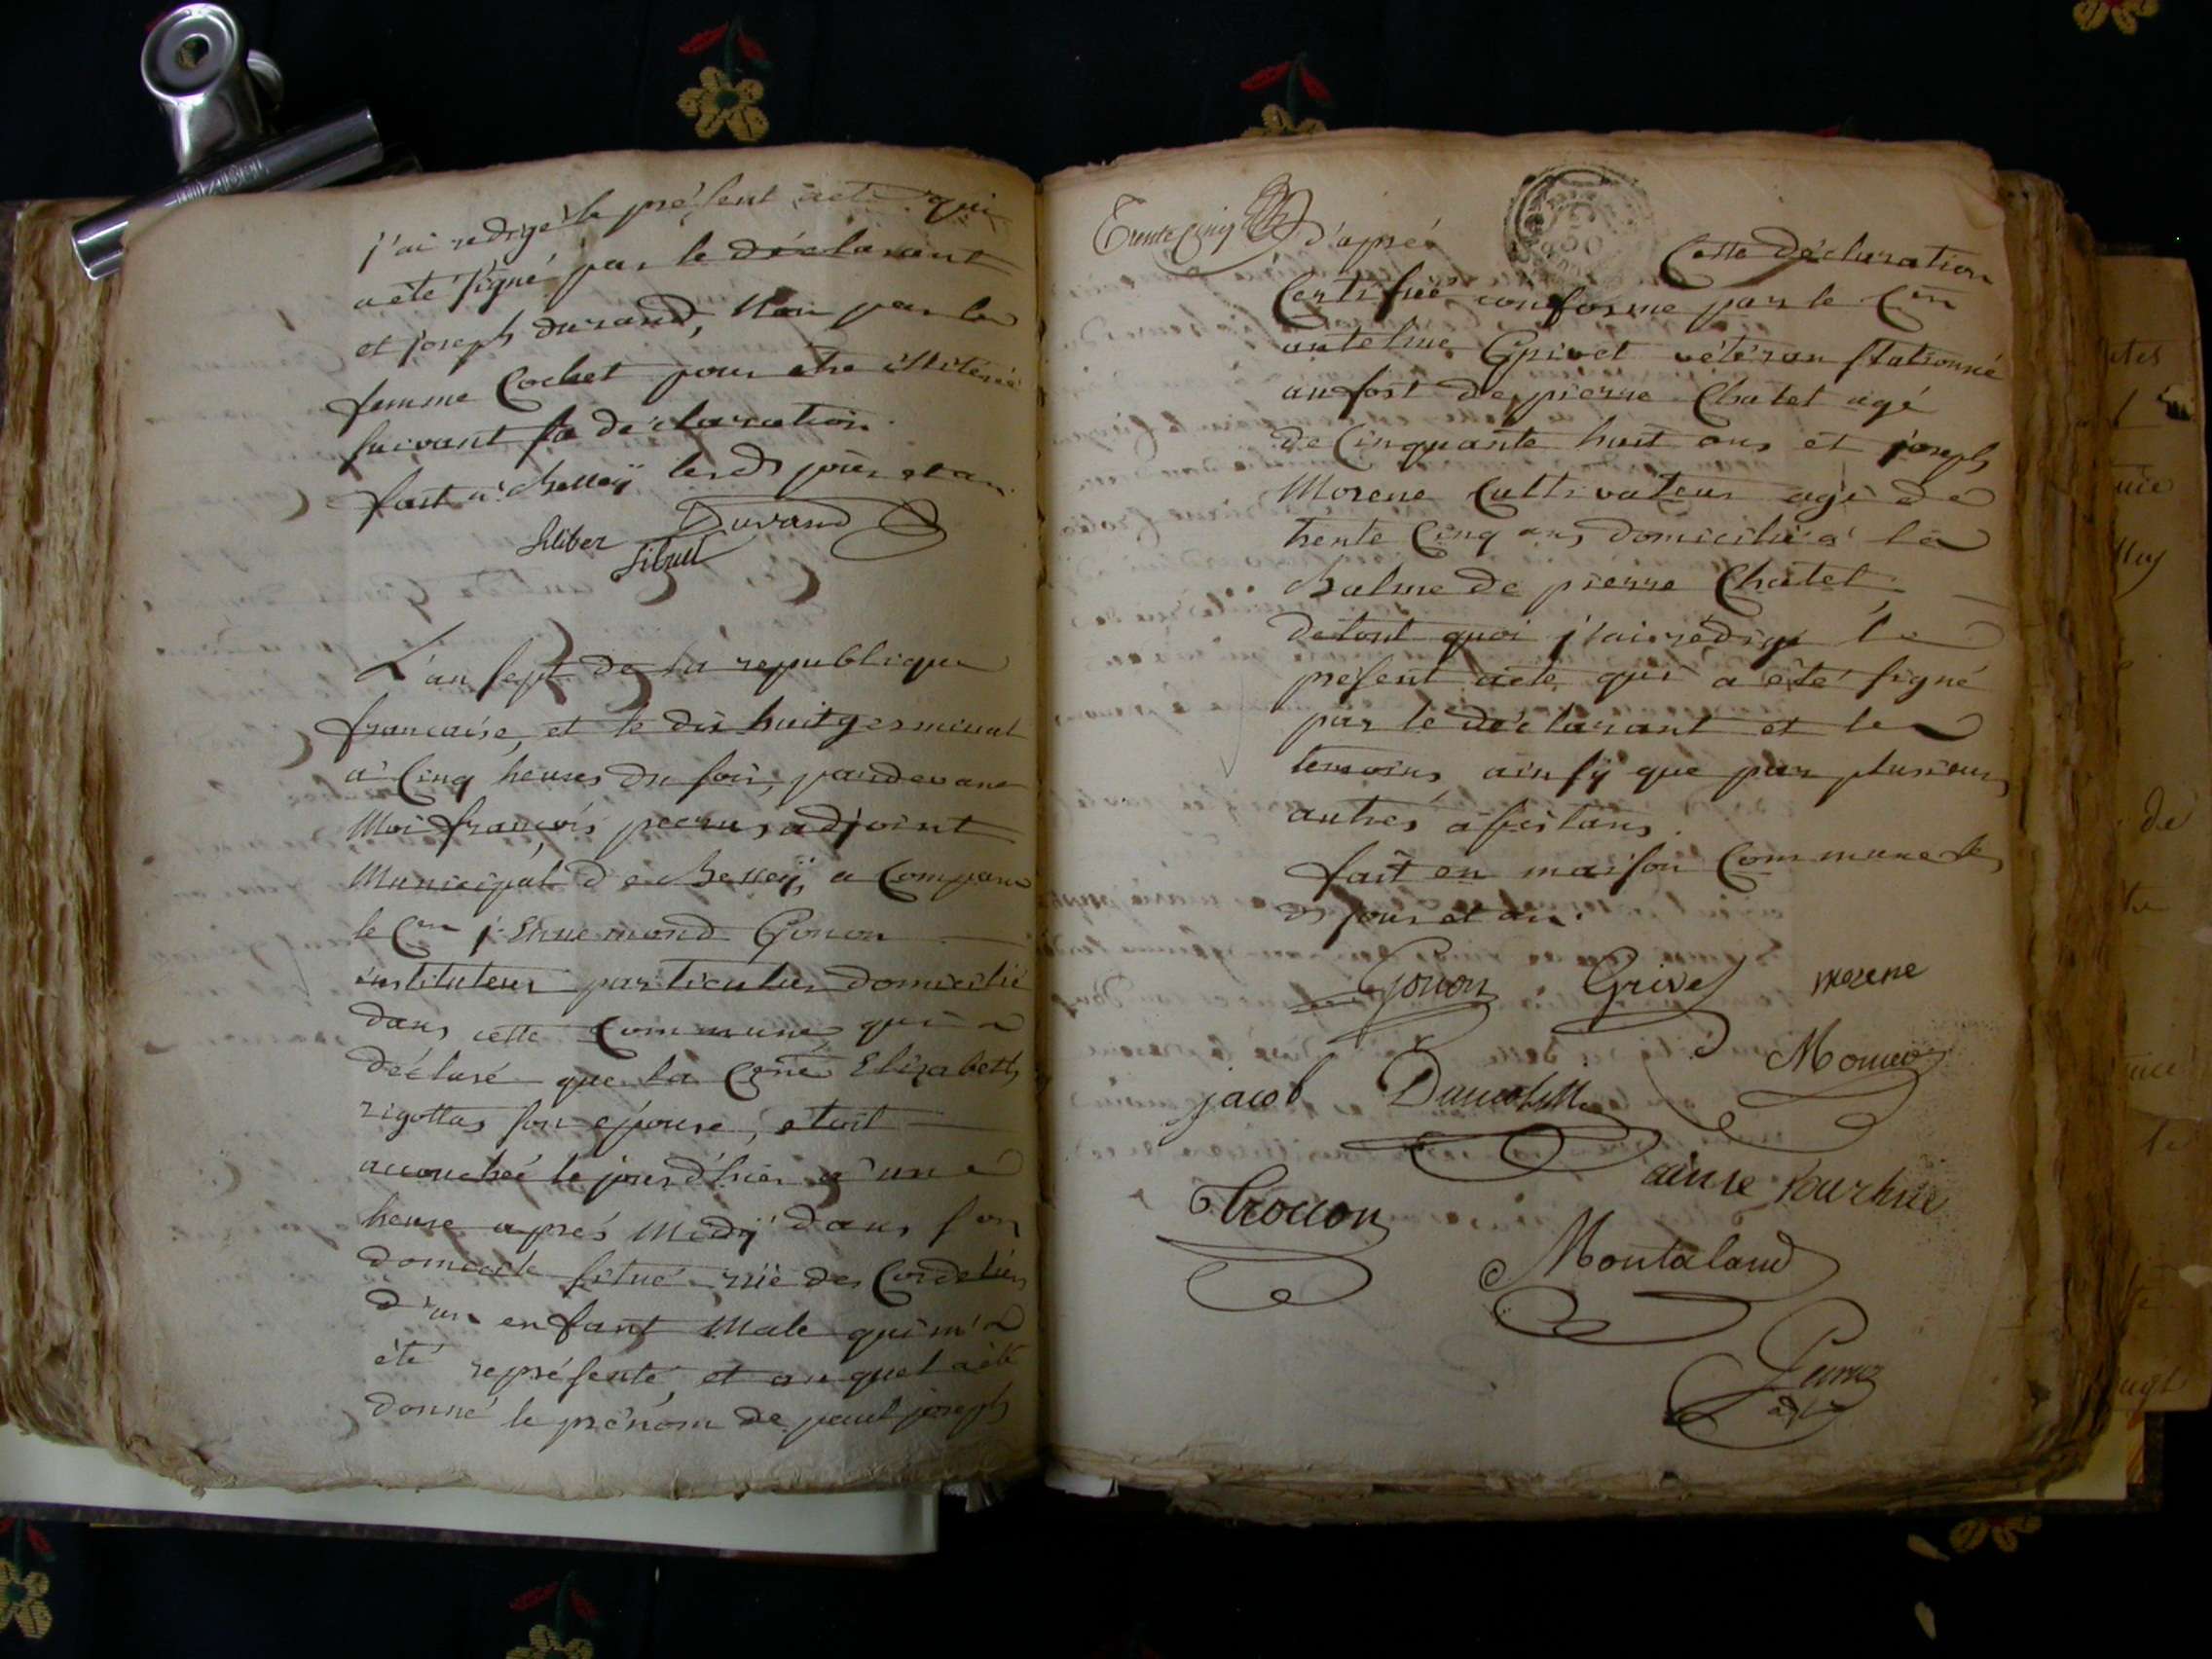 j'ai redigé le présent acte qui
a été signé par le déclarant
et joseph durand, Non par la
femme Cochet pour etre illitérée
suivant sa déclaration.
fait à Belley lesd jour et an.
Durand
Siliber
L'an sept de la republique
francaise, et le dix huit germinal
a Cinq heures du soir, pardevant
Moi françois perrus adjoint
Municipal de Belley, a Comparu
le Cen Ennemond Gonon
instituteur particulier domicilié
dans cette Commune, qui a
déclaré que la Cenne Elizabeth
rigottas son epouse, etoit
accouchée le jour d'hier a une
heure aprés Midÿ dans son
domicile situé rüe des Cordeliers
d'un enfant Male qui m'a
été représenté, et au quel a été
donné le prénom de paul joseph
Trente Cinq d'aprés
Cette déclaration
Certifiée conforme par le Cen
antelme Grivet vétéran stationné
au fort de pierre Chatel agé
de Cinquante huit ans et joseph
Morene Cultivateur agé de
trente Cinq ans domicilié a la
Balme de pierre Chatel
de tout quoi j'ai rédigé le
présent acte qui a été signé
par le déclarant et les
temoins, ainsÿ que par plusieurs
autres assistans.
fait en maison Commune les
d jour et an.
Gonon Grivet Morene
jacob
Montaland
Perrus
adj